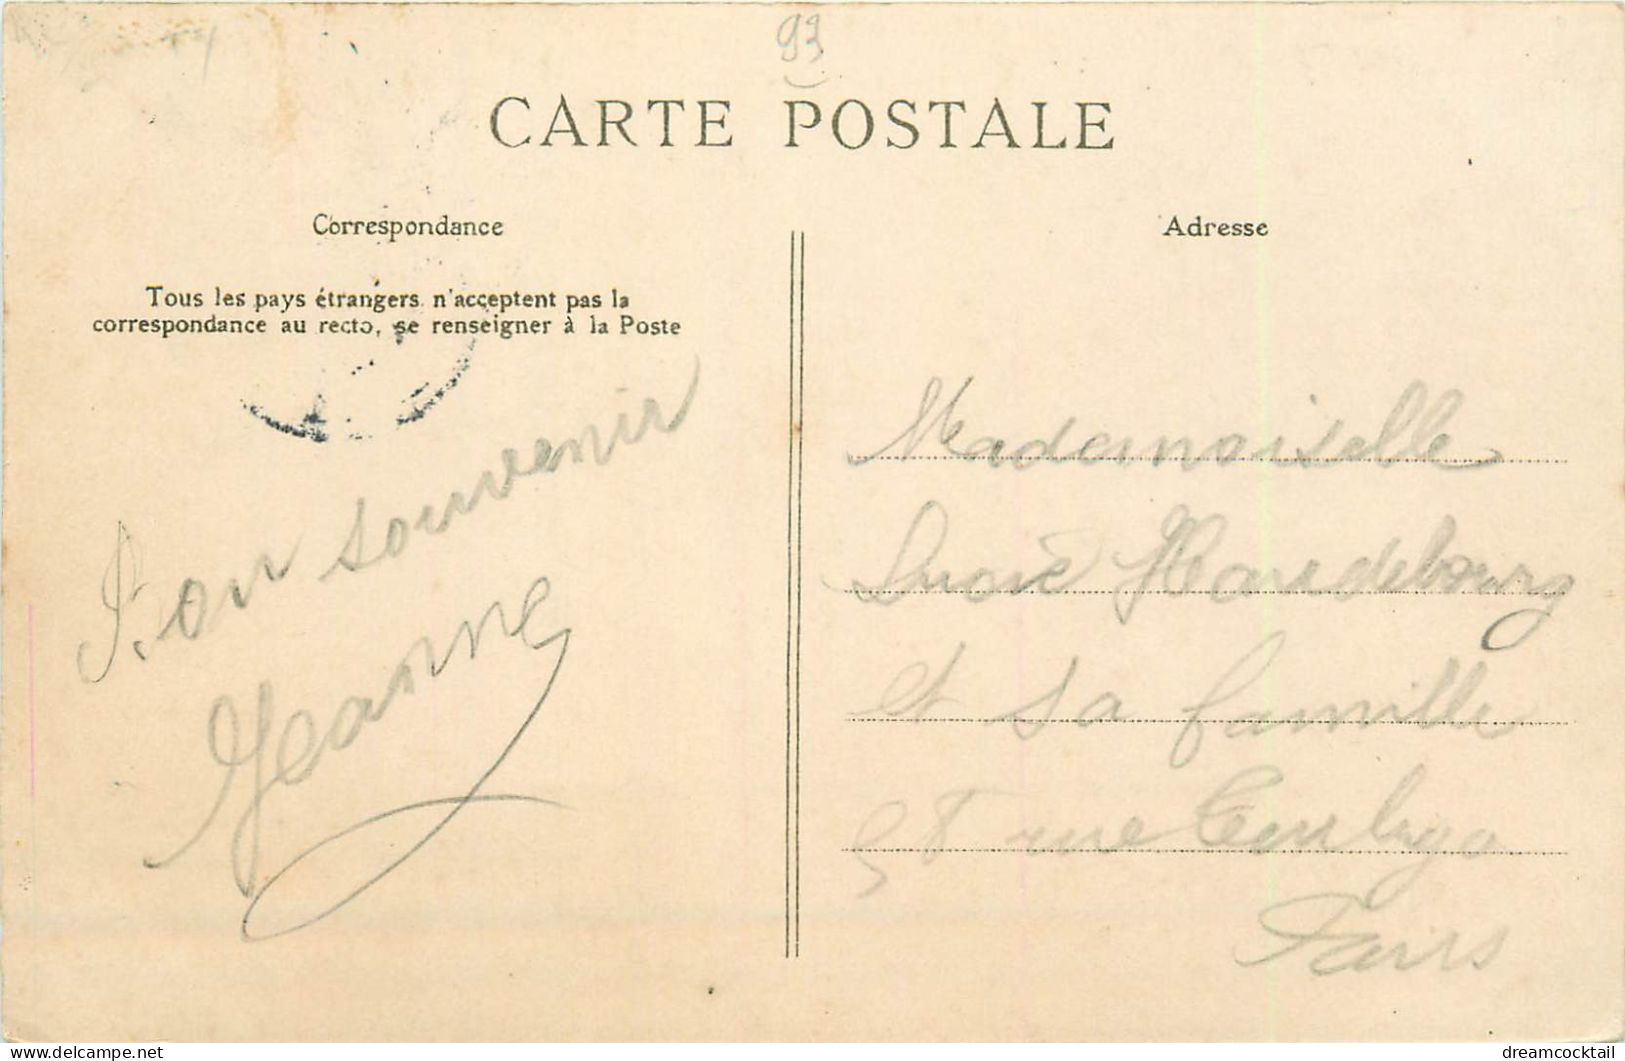 93
CARTE POSTALE
Correspondance
Tous les pays étrangers n'acceptent pas la
correspondance au recto, se renseigner à la Poste
Bon souvenir
Jeanne
Adresse
Mademoiselle
Haudebourg
et sa famille
58 rue Turbigo
Paris
dreamcocktail